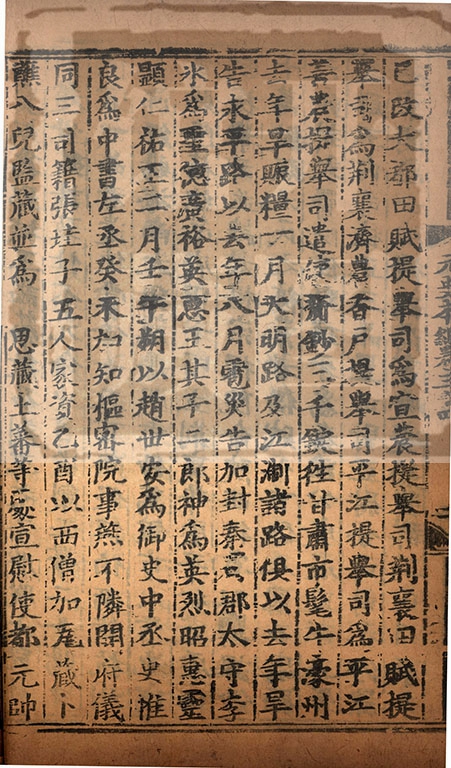 己改大都田賦提舉司爲宣農提舉司荆襄田賦提
舉司爲荆襄濟農香戶提舉司平江提舉司爲平江
善農提舉司遣使賫鈔三千錠徃甘肅市髦牛濠州
去年旱賑糧一月大明路及江浙諸路俱以去年旱
告永平路以去年八月雹災告加封秦蜀郡太守李
氷爲聖德廣裕英惠王其子二郎神爲英烈昭惠靈
顯仁祐王二月壬午朔以趙世安爲御史中丞史惟
良爲中書左丞癸未加知樞宻院事燕不隣開府儀
同三司籍張珪子五人家資乙酉以西僧加瓦藏卜
蘸八兒監藏並爲 思藏土蕃等處宣慰使都元帥